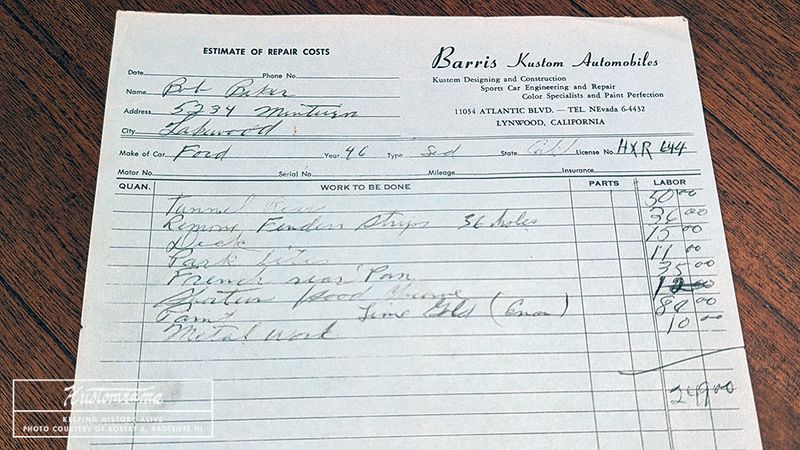 ESTIMATE OF REPAIR COSTS
Barris Kustom Automobiles
Kustom Designing and Construction
Sports Car Engineering and Repair
Color Specialists and Paint Perfection
11054 ATLANTIC BLVD. — TEL. NEvada 6-4432
LYNWOOD, CALIFORNIA
Date Phone No.
Name Bob Baker
Address 5734 Minturn
City Lakewood
Make of Car Ford Year 46 Type Sed State Calif License No. HXR 644
Motor No. Serial No. Mileage Insurance
QUAN. WORK TO BE DONE PARTS LABOR
Tunnel 50 00
Remove Fenders Strips 36 Holes 36 00
Deck 15 00
Park Lites 11 00
French rear Pan 35 00
Hood 12 00
Paint Lime Gold 80 00
Metal Work 10 00
249 00
Kustomrama
KEEPING HISTORY ALIVE
PHOTO COURTESY OF ROBERT A. RADCLIFFE III